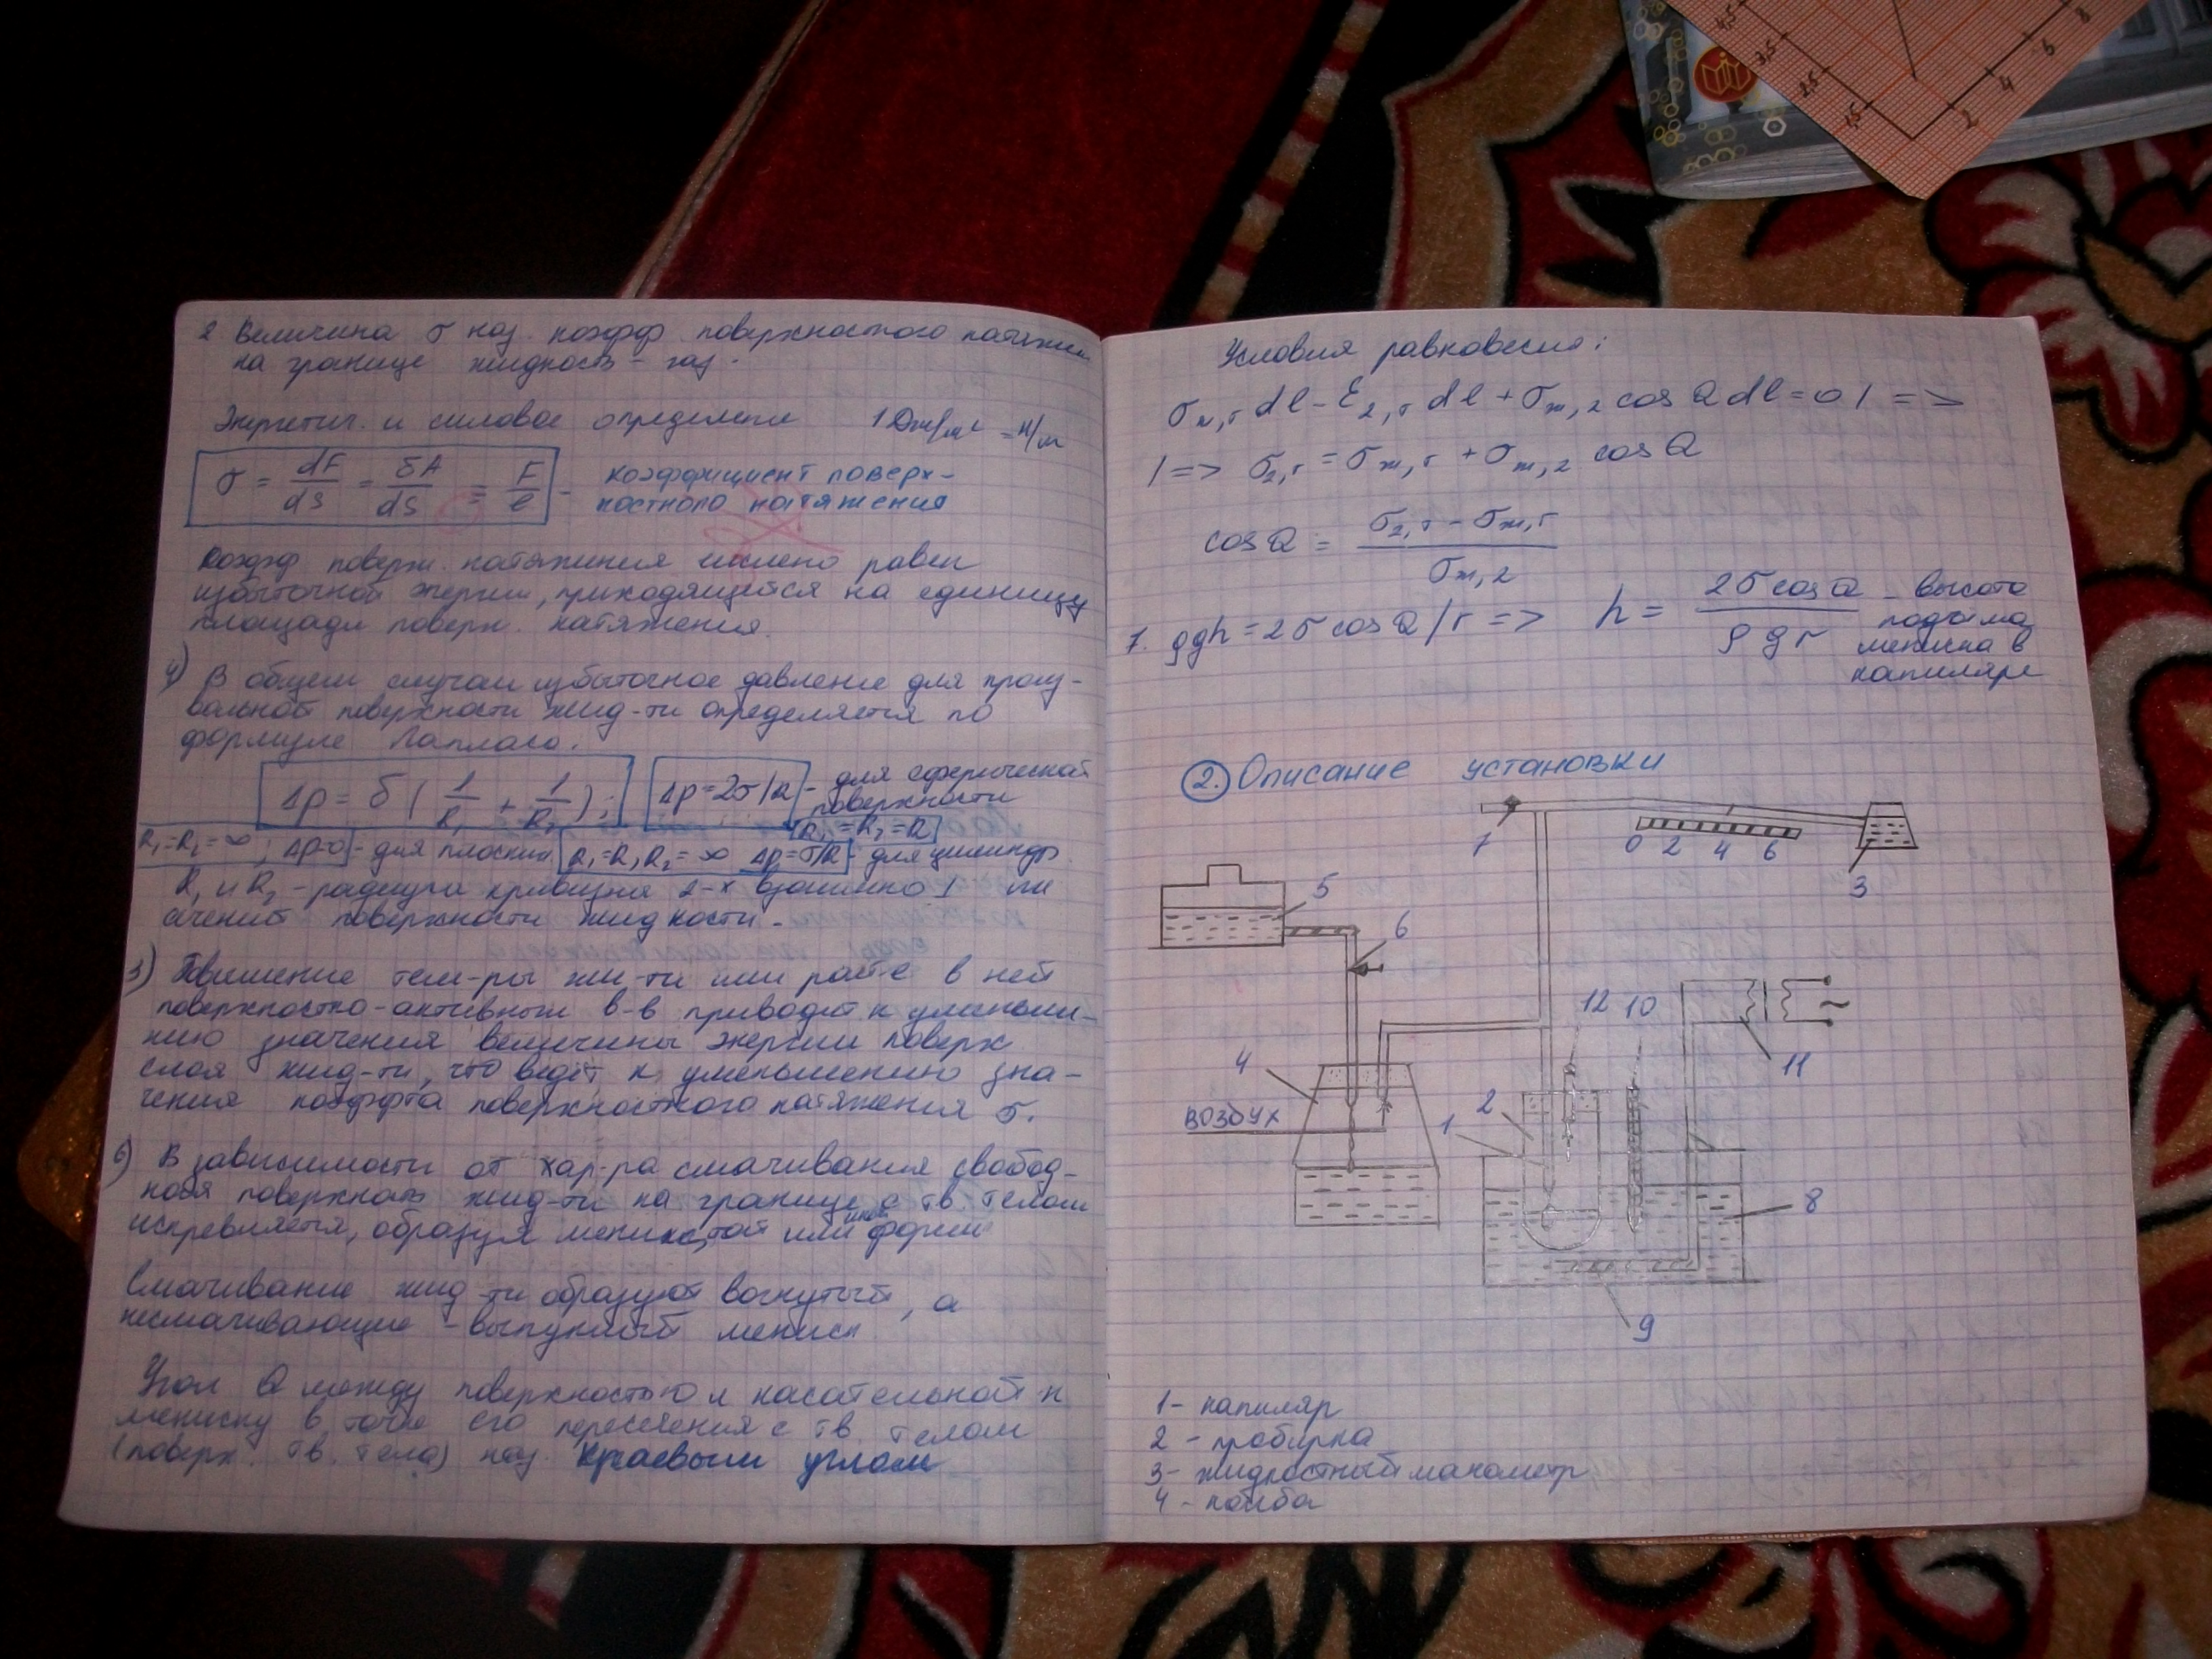 2 Величина σ наз. коэфф поверхностного натяжения
на границе жидкость – газ.
Энергетич. и силовое определение 1 Дж/м² = Н/м
σ = dF/dS = δA/dS = F/ℓ – коэффициент поверх-
ностного натяжения
Коэфф поверхн. натяжения числено равен
избыточной энергии, приходящейся на единицу
площади поверхн. натяжения.
4) В общем случаи избыточное давление для произ-
вольной поверхности жид-ти определяется по
формуле Лапласа.
Δp = δ ( 1/R₁ + 1/R₂ ); Δp = 2σ/R – для сферической
поверхности
R₁ = R₂ = R
R₁ = R₂ = ∞; Δp=0 – для плоских R₁ = R, R₂ = ∞ Δp = σ/R – для цилиндр
R₁ и R₂ – радиусы кривизны 2-х взаимно ⊥
сечений поверхности жидкости.
Повышение тем-ры жи-ти или в ней
поверхностно-активных в-в приводит к уменьше-
нию значения величины энергии поверх
слоя жид-ти, что ведёт к уменьшению зна-
чения коэффта поверхностного натяжения σ.
6) В зависимости от хар-ра смачивания свобод-
ная поверхность жид-ти на границе с тв. телом
искревляется, образуя или формы
Смачивание жид-ти образуют вогнутый, а
несмачивающие – выпуклый мениск
Угол Q между поверхностью и касательной к
мениску в точке его пересечения с тв. телом
(поверх. тв. тела) наз. краевым углом
Условия равновесия:
σж,т dl – Ɛ2,т dl + σж,2 cos Q dl = 0 | =>
| => σ2,т = σж,т + σж,2 cos Q
cos Q = (σ2,т – σж,т) / σж,2
7. ρgh = 2σ cos Q / r => h = 2σ cos Q / ρ g r – высота
подъёма
мениска в
капиляре
2. Описание установки
7
0 2 4 6
3
5
6
12 10
4
11
2
воздух
1
8
9
1 – капиляр
2 – пробирка
3 – жидкостный манометр
4 – колба
4,5
3,5
2,5
1,5
2
4
6
8